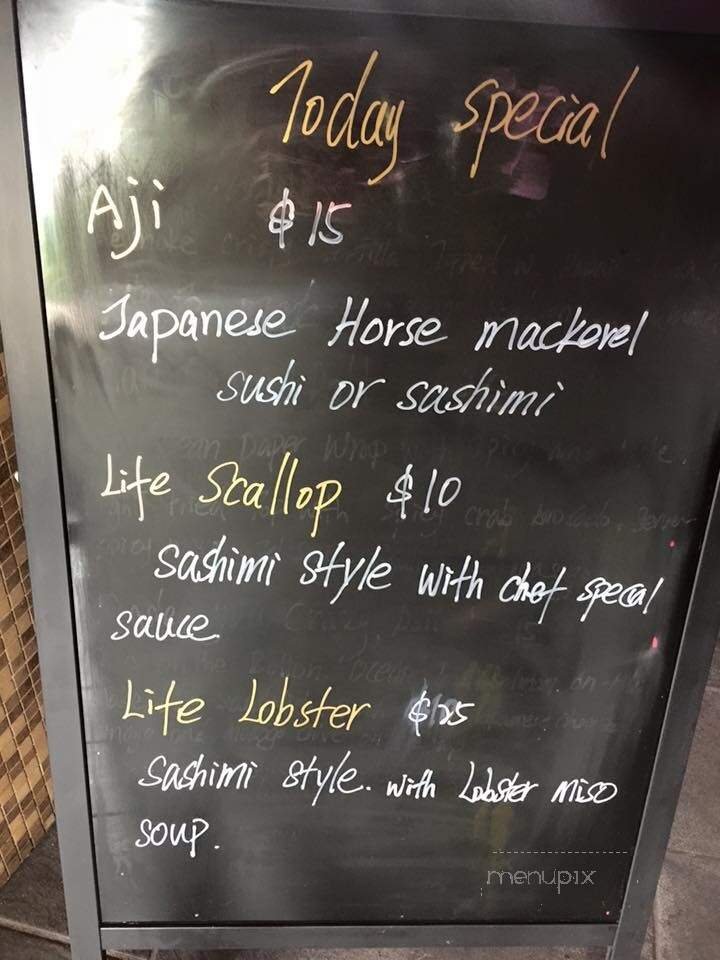 Today special
Aji $15
Japanese Horse mackerel
sushi or sashimi
Life Scallop $10
sashimi style with chef specal
sauce.
Life Lobster $25
sashimi style. with Lobster miso
soup.
menupix